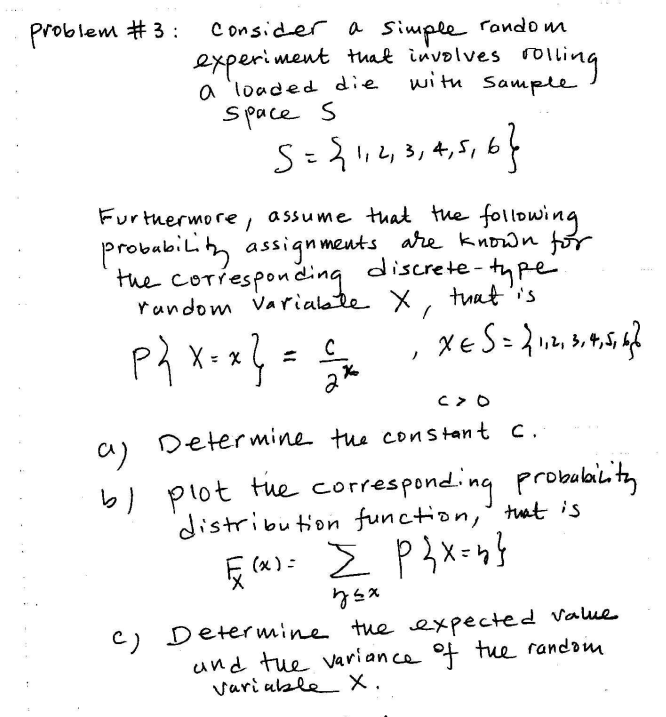 Problem # 3 : Consider a simple random
experiment that involves rolling
a loaded die with sample
space S
S = { 1, 2, 3, 4, 5, 6 }
Furthermore, assume that the following
probability assignments are known for
the corresponding discrete-type
random variable X, that is
P{ X = x } = c / 2^x , x ∈ S = { 1, 2, 3, 4, 5, 6 }
c > 0
a) Determine the constant c.
b) plot the corresponding probability
distribution function, that is
F_X (x) = Σ_{y ≤ x} P{ X = y }
c) Determine the expected value
and the variance of the random
variable X.